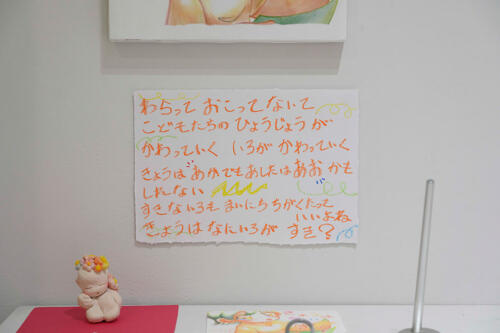 わらって おこって ないて
こどもたちの ひょうじょうが
かわっていく いろが かわっていく
きょうは あかでも あしたは あお かも
しれない
すきないろも まいにち ちがくたって
いいよね
きょうは なにいろが すき?